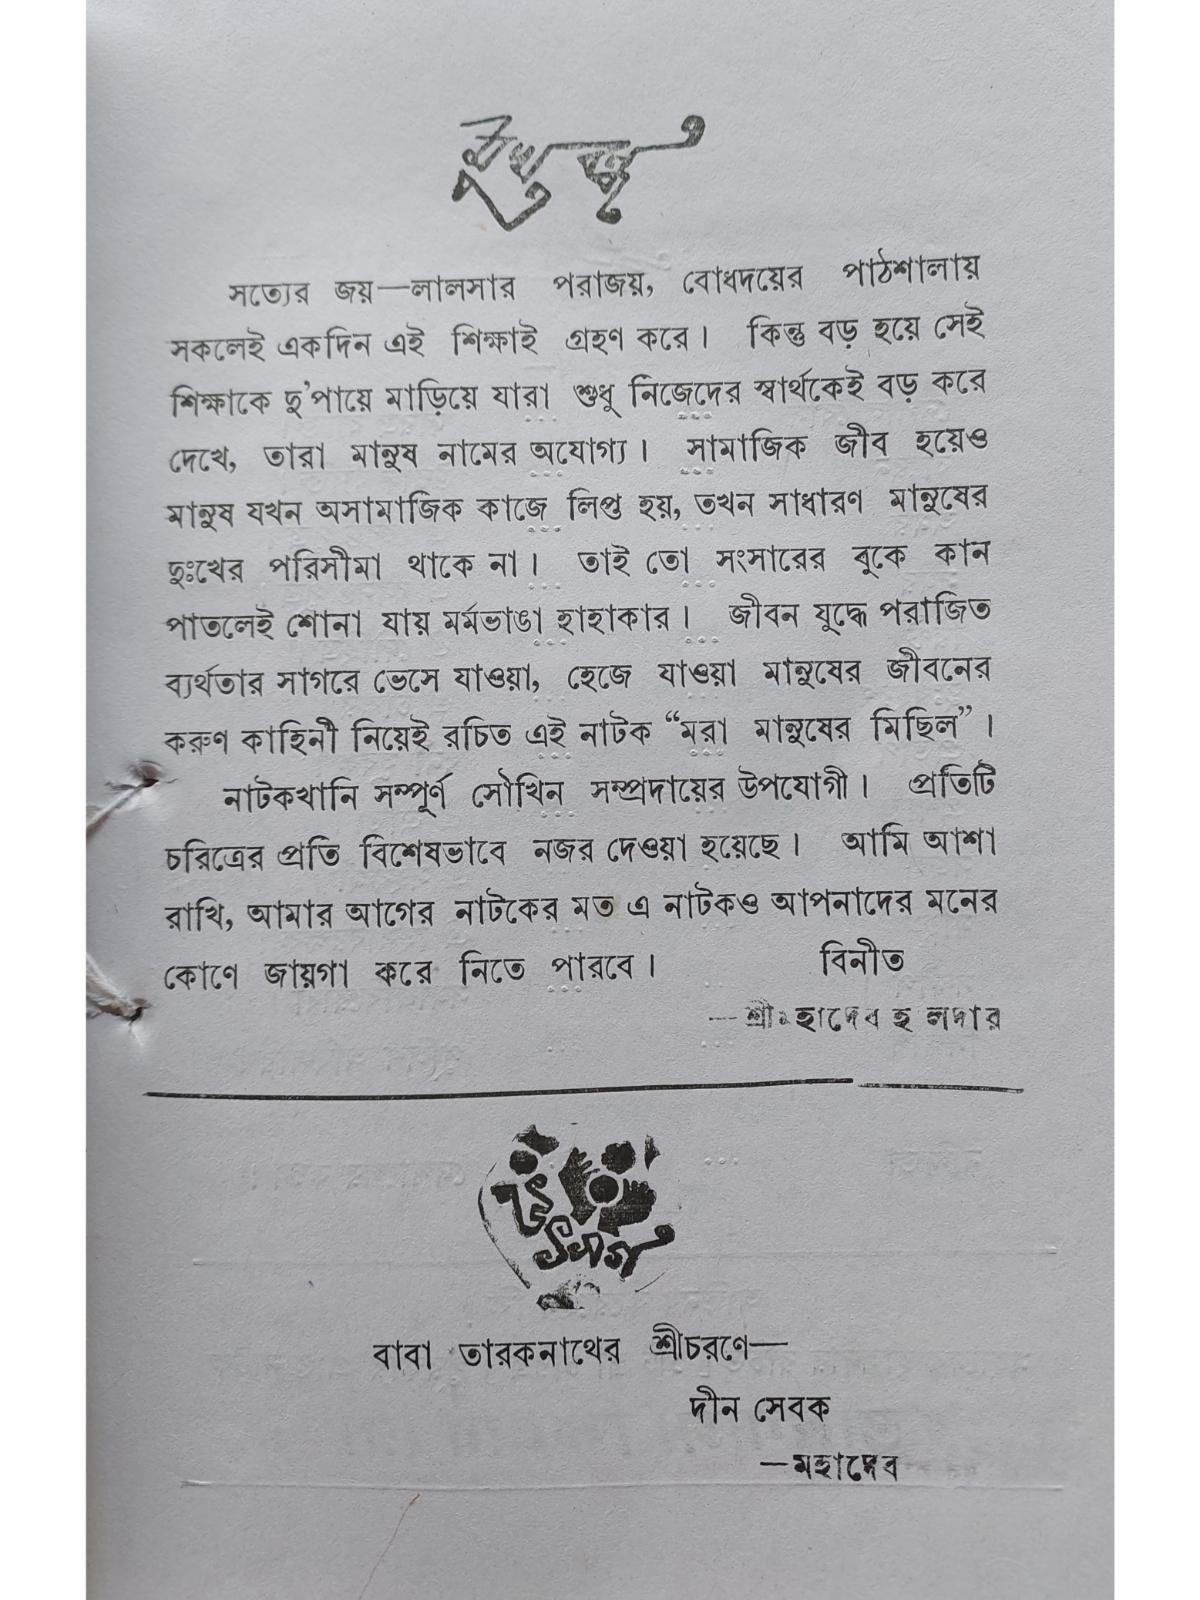 মুখবন্ধ
সত্যের জয়—লালসার পরাজয়, বোধদয়ের পাঠশালায়
সকলেই একদিন এই শিক্ষাই গ্রহণ করে। কিন্তু বড় হয়ে সেই
শিক্ষাকে দু'পায়ে মাড়িয়ে যারা শুধু নিজেদের স্বার্থকেই বড় করে
দেখে, তারা মানুষ নামের অযোগ্য। সামাজিক জীব হয়েও
মানুষ যখন অসামাজিক কাজে লিপ্ত হয়, তখন সাধারণ মানুষের
দুঃখের পরিসীমা থাকে না। তাই তো সংসারের বুকে কান
পাতলেই শোনা যায় মর্মভাঙা হাহাকার। জীবন যুদ্ধে পরাজিত
ব্যর্থতার সাগরে ভেসে যাওয়া, হেজে যাওয়া মানুষের জীবনের
করুণ কাহিনী নিয়েই রচিত এই নাটক “মরা মানুষের মিছিল”।
নাটকখানি সম্পূর্ণ সৌখিন সম্প্রদায়ের উপযোগী। প্রতিটি
চরিত্রের প্রতি বিশেষভাবে নজর দেওয়া হয়েছে। আমি আশা
রাখি, আমার আগের নাটকের মত এ নাটকও আপনাদের মনের
কোণে জায়গা করে নিতে পারবে। বিনীত
—শ্রীমহাদেব হালদার
উৎসর্গ
বাবা তারকনাথের শ্রীচরণে—
দীন সেবক
—মহাদেব